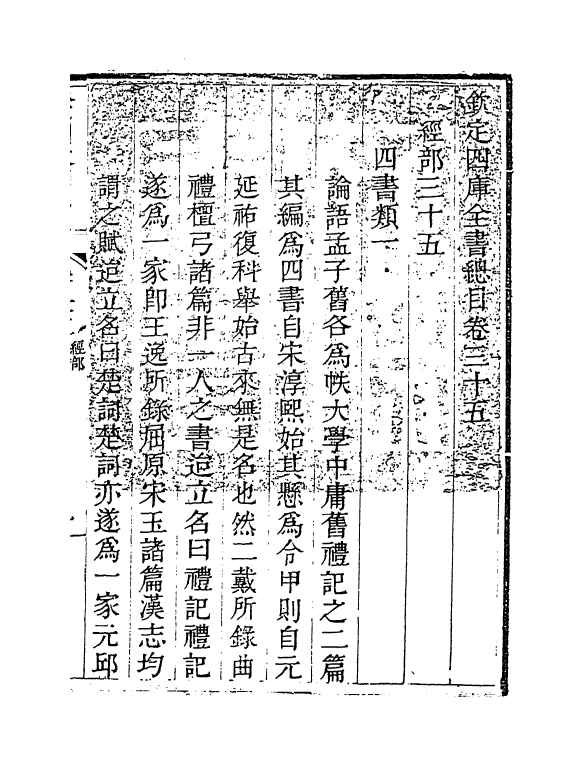 欽定四庫全書總目卷三十五
經部三十五
四書類一
論語孟子舊各爲帙大學中庸舊禮記之二篇
其編爲四書自宋淳熙始其懸爲令甲則自元
延祐復科舉始古來無是名也然二戴所錄曲
禮檀弓諸篇非一人之書迨立名曰禮記禮記
遂爲一家即王逸所錄屈原宋玉諸篇漢志均
謂之賦迨立名曰楚詞楚詞亦遂爲一家元邱
經部